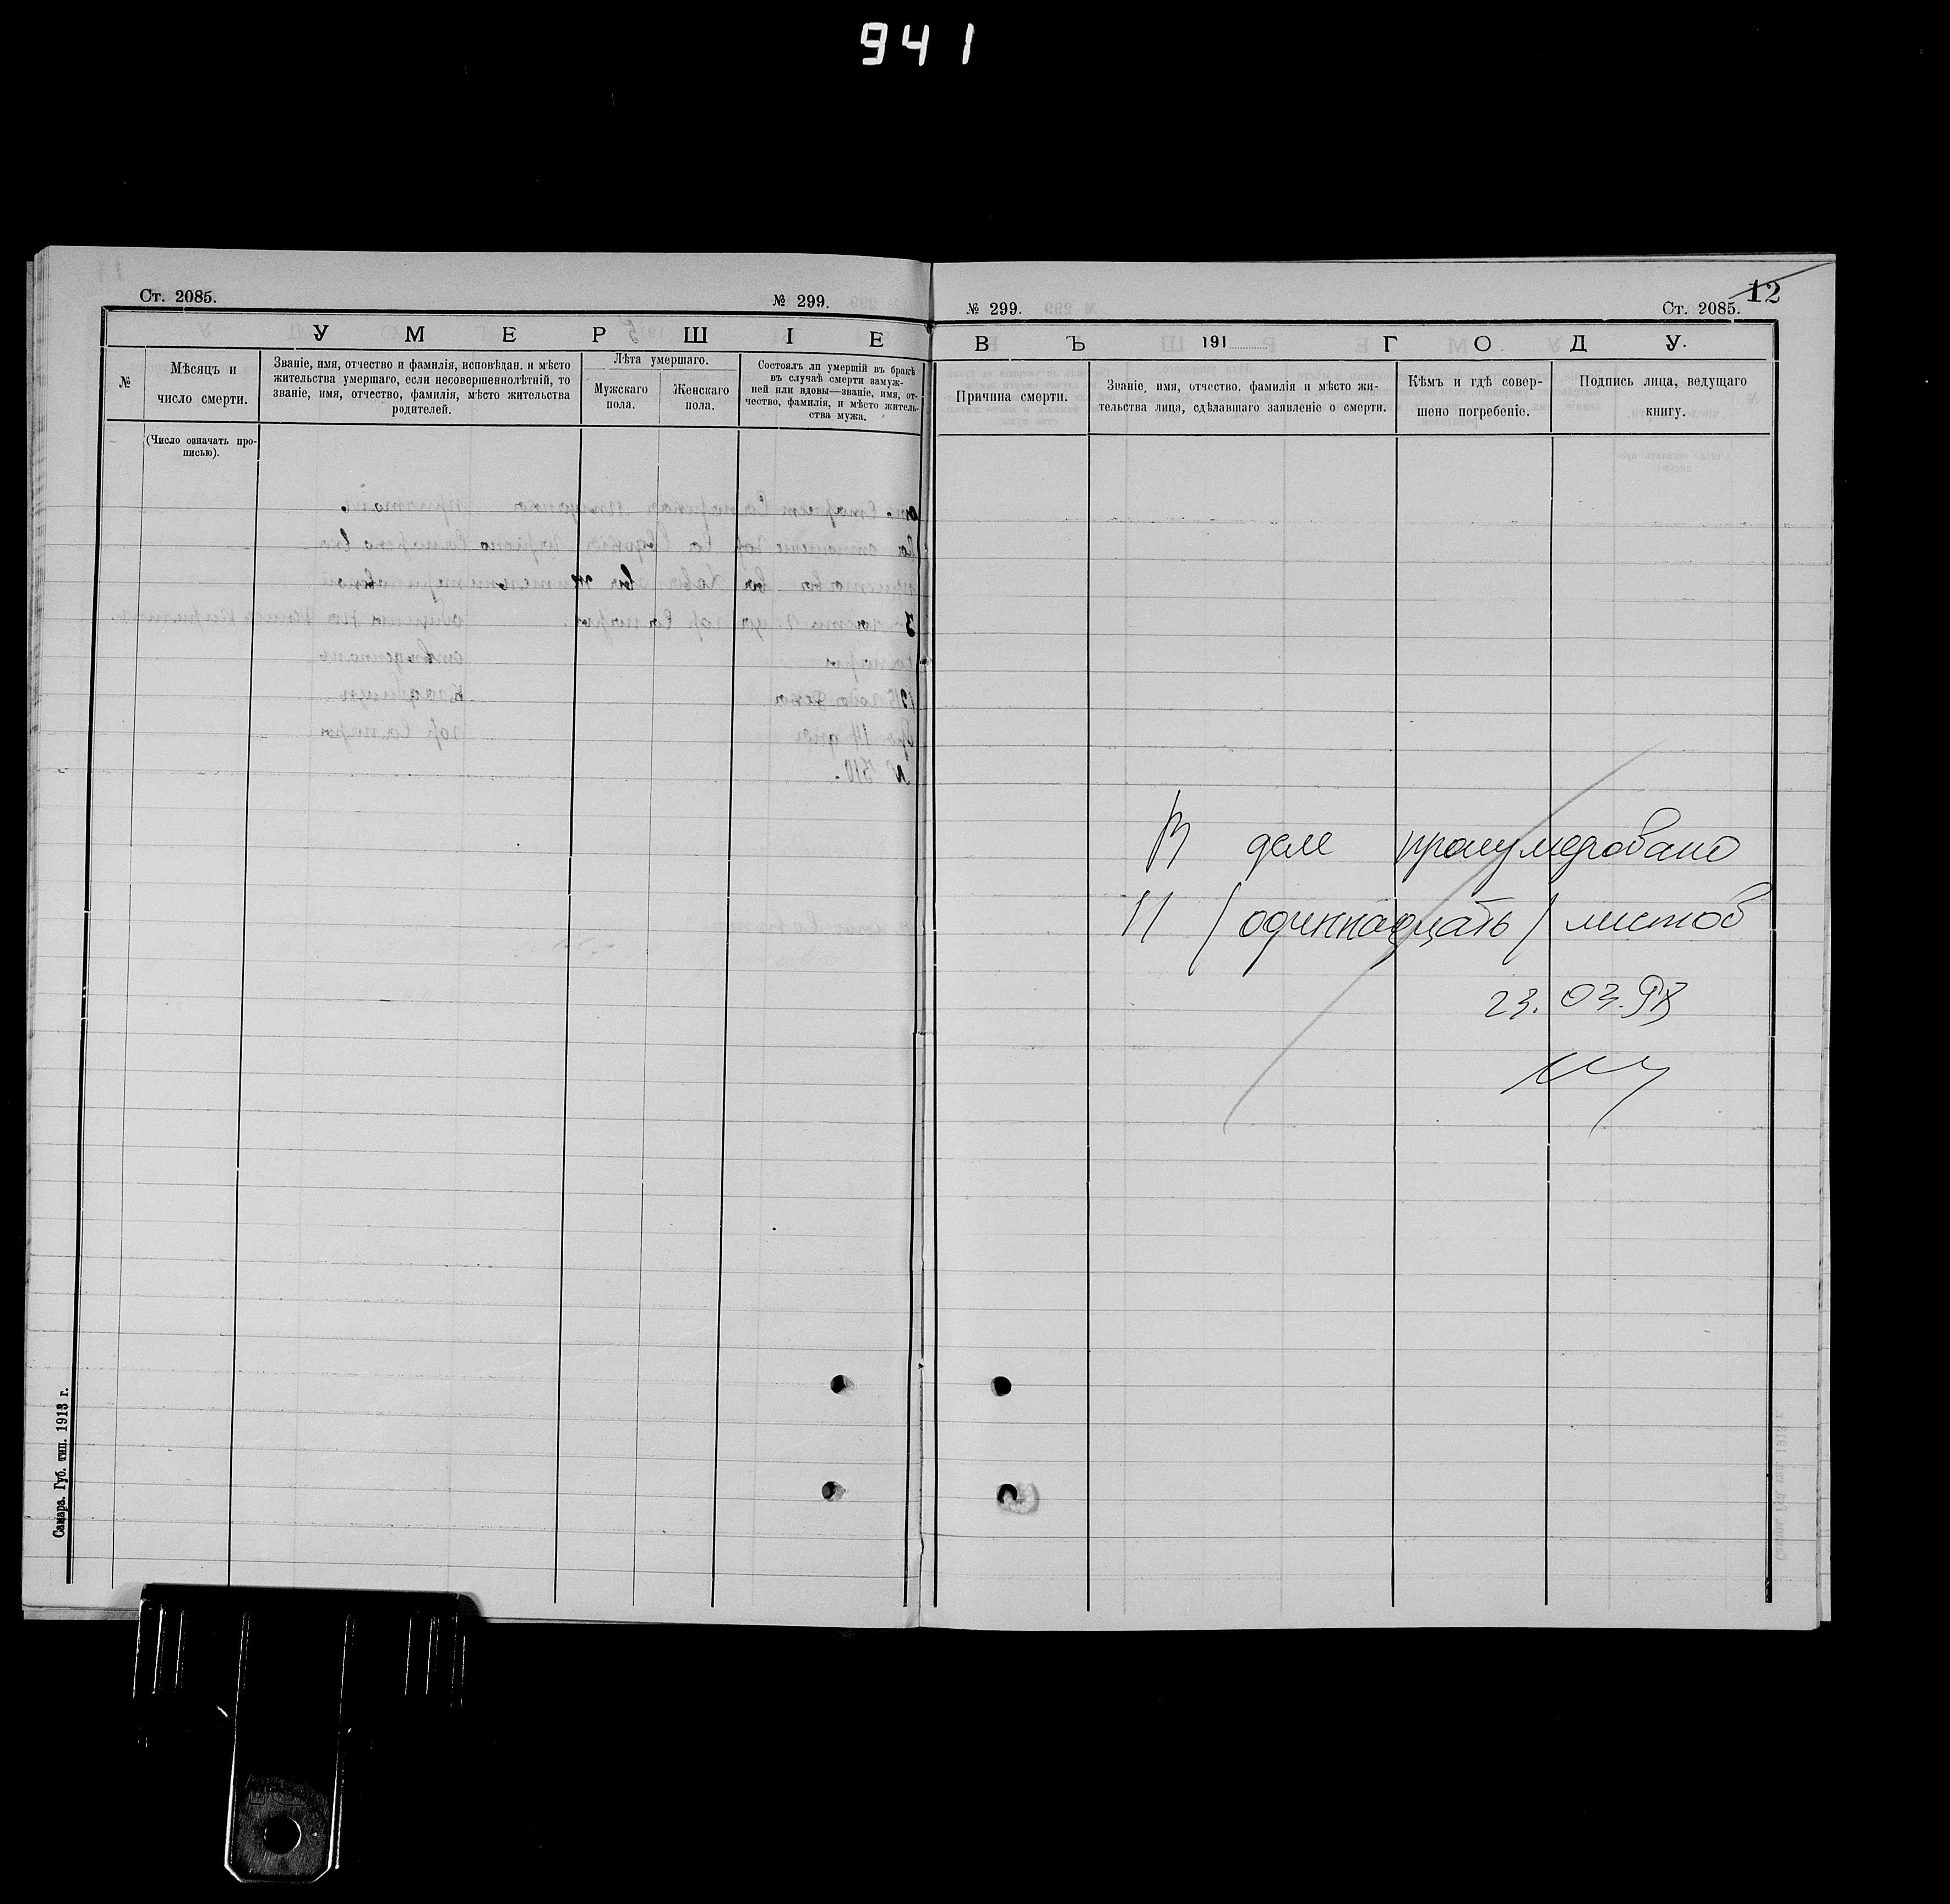 941
Ст. 2085.
№ 299.
УМЕРШІЕ
№
Мѣсяцъ и
число смерти.
(Число означать про-
писью).
Званіе, имя, отчество и фамилія, исповѣдан. и мѣсто
жительства умершаго, если несовершеннолѣтній, то
званіе, имя, отчество, фамилія, мѣсто жительства
родителей.
Лѣта умершаго.
Мужскаго
пола.
Женскаго
пола.
Состоялъ лп умершій въ бракѣ
въ случаѣ смерти замуж-
ней или вдовы—званіе, имя, от-
чество, фамилія, и мѣсто житель-
ства мужа.
Самара. Губ. тип. 1913 г.
№ 299.
Ст. 2085.
12
ВЪ 191 ГОДУ.
Причина смерти.
Званіе, имя, отчество, фамилія и мѣсто жи-
тельства лица, сдѣлавшаго заявленіе о смерти.
Кѣмъ и гдѣ совер-
шено погребеніе.
Подпись лица, ведущаго
книгу.
В деле пронумеровано
11 /одиннадцать/ листов
23.03.98